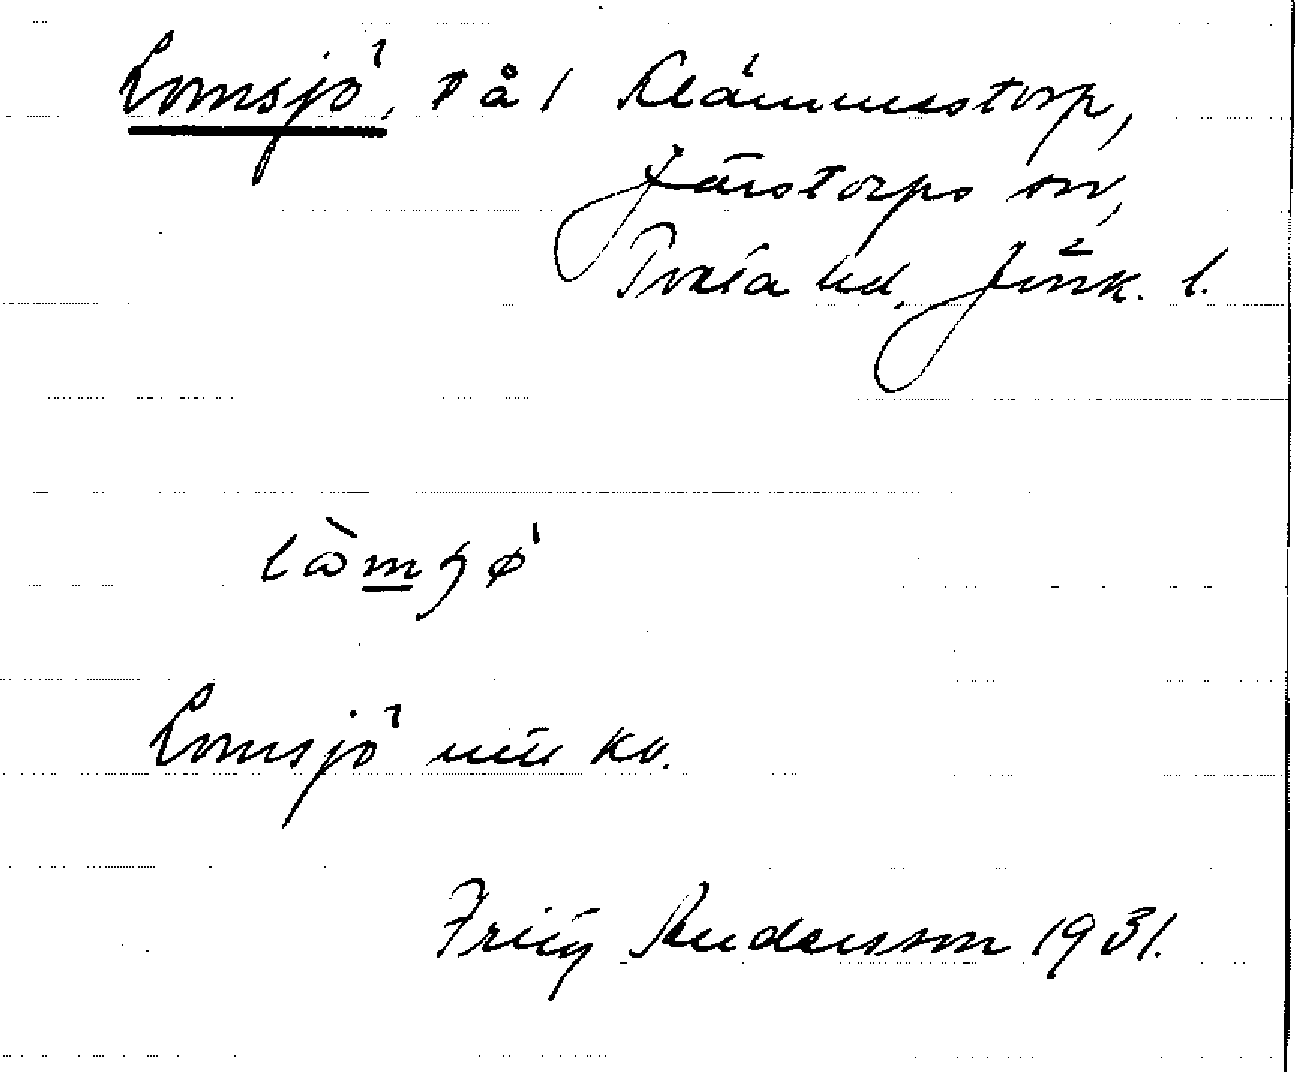 Lomsjö, på 1 Klämmestorp,
Järstorps sn,
Tveta hd, Jönk. l.
Lomsjö enl. kv.
Fritz Andersson 1931.